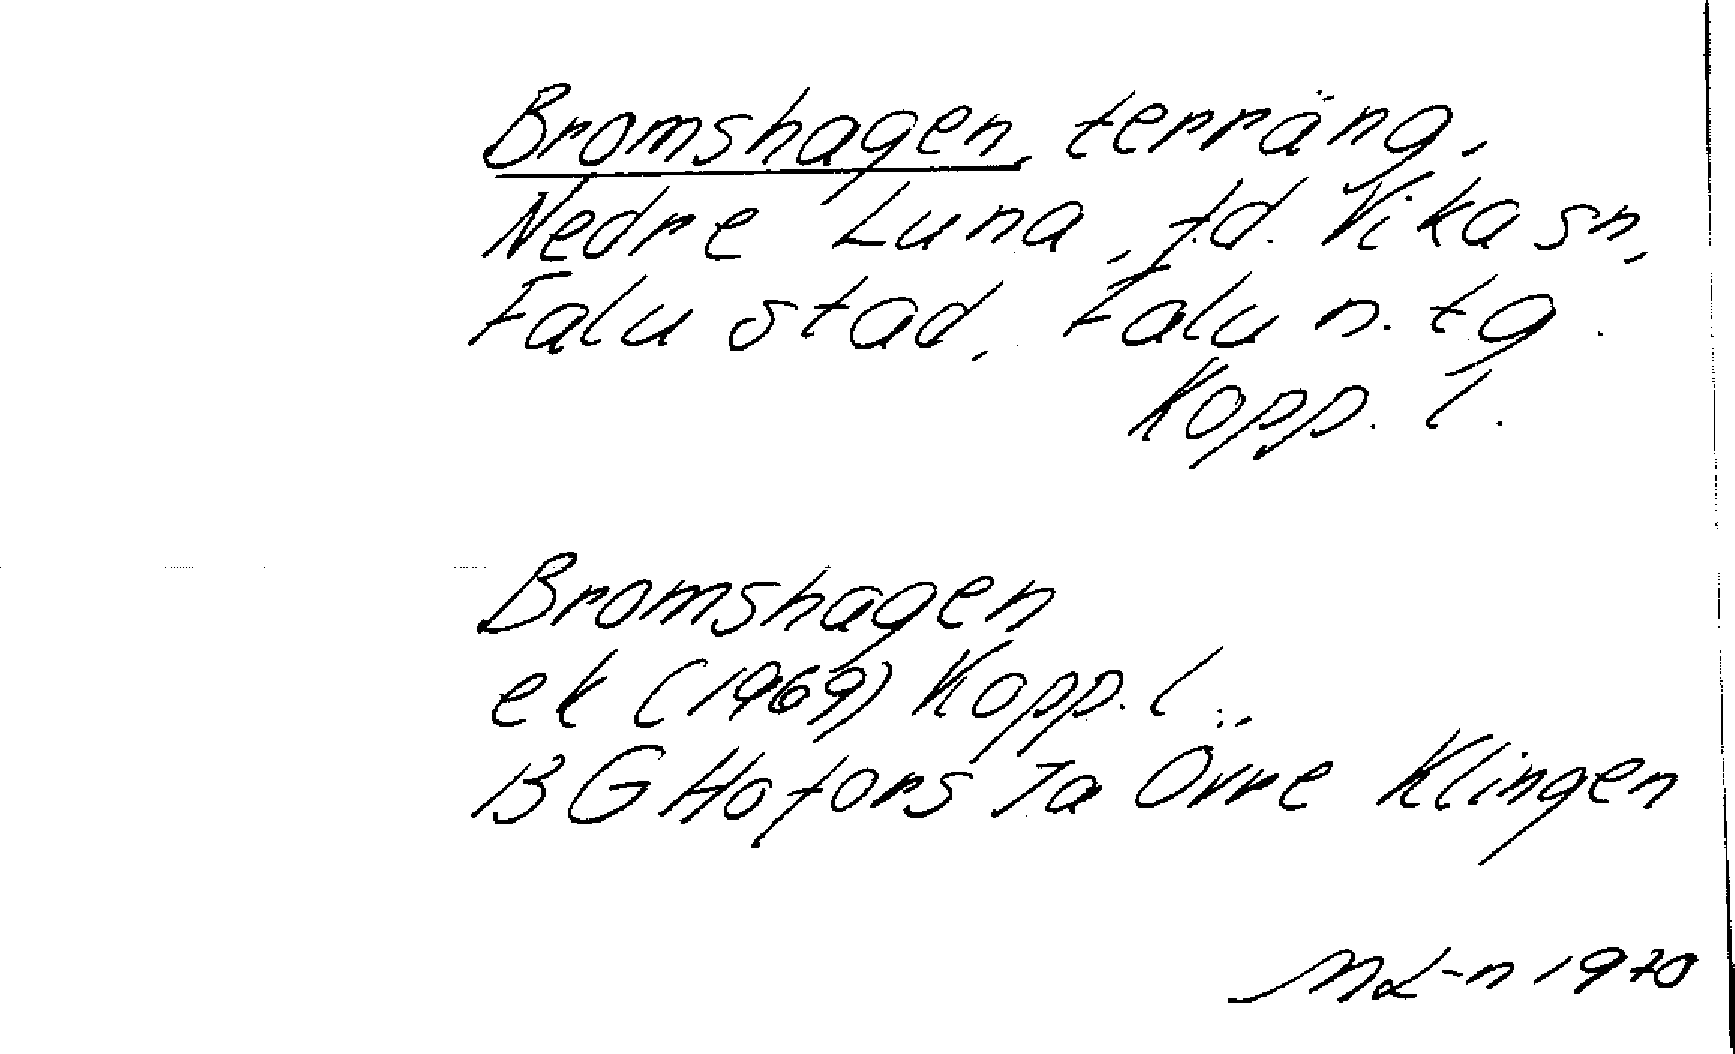 Bromshagen, terräng.
Nedre Luna, f.d. Vika sn,
Falu stad, Falu n. tg.
Kopp. l.
Bromshagen
ek (1969) Kopp. l.
13 G Hofors 7a Övre Klingen
ML-n 1970